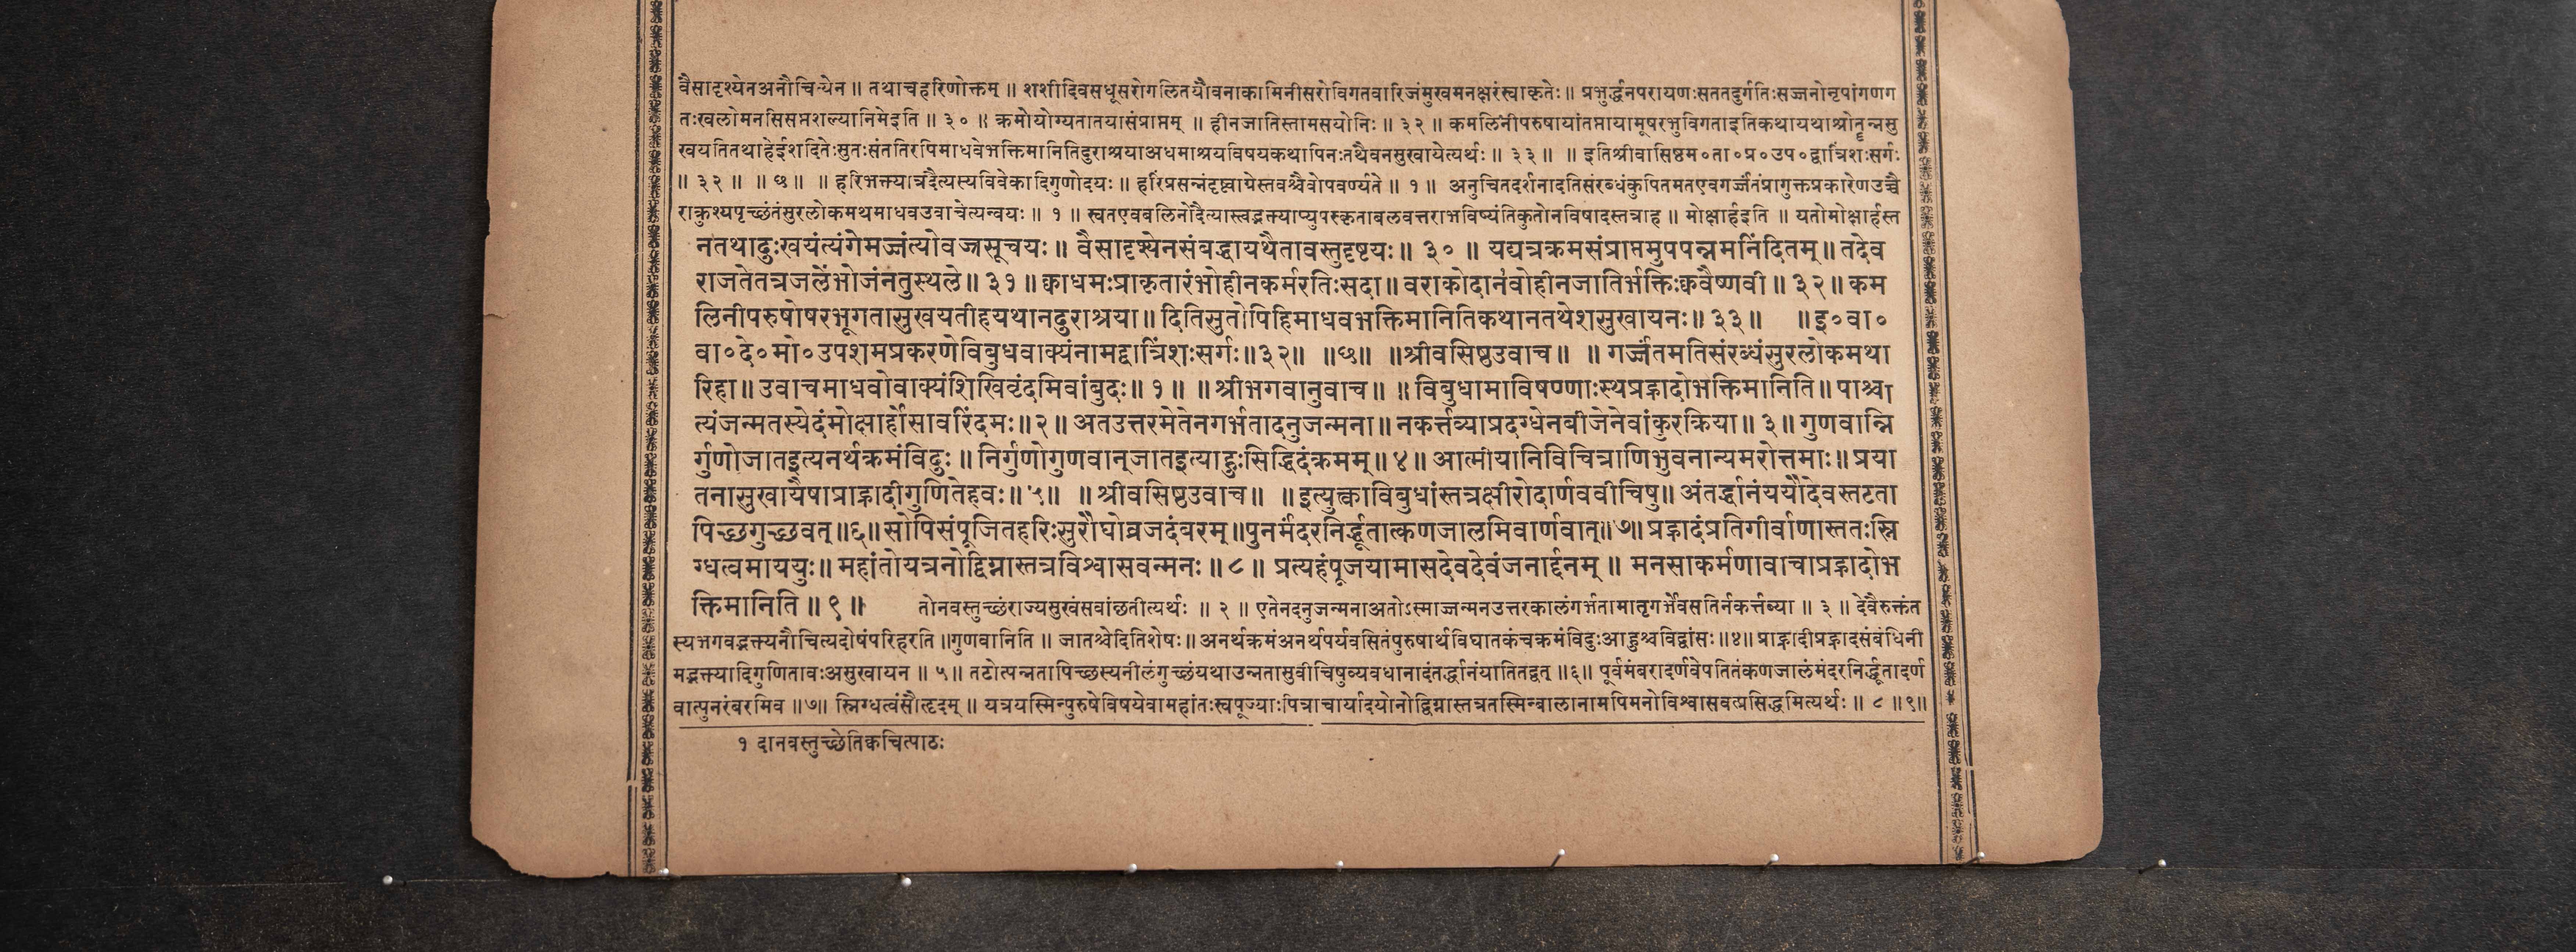 वैसादृश्येनअनौचित्येन ॥ तथाचहरिणोक्तम् ॥ शशीदिवसधूसरोगलितयौवनाकामिनीसरोविगतवारिजंमुखमनक्षरंस्वाकृतेः ॥ प्रभुर्द्धनपरायणःसततदुर्गतिःसज्जनोनृपांगणग
तःखलोमनसिसप्तशल्यानिमेइति ॥ ३० ॥ क्रमोयोग्यतातयासंप्राप्तम् ॥ हीनजातिस्तामसयोनिः ॥ ३२ ॥ कमलिनीपरुषायांतप्तायामूषरभुविगताइतिकथायथाश्रोतॄन्नसु
खयतितथाहेईशदितेःसुतःसंततिरपिमाधवेभक्तिमानितिदुराश्रयाअधमाश्रयविषयकथापिनःतथैवनसुखायेत्यर्थः ॥ ३३ ॥ ॥ इतिश्रीवासिष्ठम०ता०प्र०उप०द्वात्रिंशःसर्गः
॥ ३२ ॥ ॥ छ ॥ ॥ हरिभक्त्यात्रदैत्यस्यविवेकादिगुणोदयः ॥ हरिंप्रसन्नंदृष्ट्वाग्रेस्तवश्चैवोपवर्ण्यते ॥ १ ॥ अनुचितदर्शनादतिसंरब्धंकुपितमतएवगर्ज्जंतंप्रागुक्तप्रकारेणउच्चै
राक्रुश्यपृच्छंतंसुरलोकमथमाधवउवाचेत्यन्वयः ॥ १ ॥ स्वतएवबलिनोदैत्यास्त्वद्भक्त्याप्युपस्कृताबलवत्तराभविष्यंतिकुतोनविषादस्तत्राह ॥ मोक्षार्हइति ॥ यतोमोक्षार्हस्त
नतथादुःखयंत्यंगेमज्जंत्योवज्रसूचयः ॥ वैसादृश्येनसंबद्धायथैतावस्तुदृष्टयः ॥ ३० ॥ यद्यत्रक्रमसंप्राप्तमुपपन्नमनिंदितम् ॥ तदेव
राजतेतत्रजलेंभोजंनतुस्थले ॥ ३१ ॥ क्वाधमःप्राकृतारंभोहीनकर्मरतिःसदा ॥ वराकोदानवोहीनजातिर्भक्तिःक्ववैष्णवी ॥ ३२ ॥ कम
लिनीपरुषोषरभूगतासुखयतीहयथानदुराश्रया ॥ दितिसुतोपिहिमाधवभक्तिमानितिकथानतथेशसुखायनः ॥ ३३ ॥ ॥ इ०वा०
वा०दे०मो०उपशमप्रकरणेविबुधवाक्यंनामद्वात्रिंशःसर्गः ॥ ३२ ॥ ॥ छ ॥ ॥ श्रीवसिष्ठउवाच ॥ ॥ गर्ज्जंतमतिसंरब्धंसुरलोकमथा
रिहा ॥ उवाचमाधवोवाक्यंशिखिवृंदमिवांबुदः ॥ १ ॥ ॥ श्रीभगवानुवाच ॥ ॥ विबुधामाविषण्णाःस्थप्रह्लादोभक्तिमानिति ॥ पाश्चा
त्यंजन्मतस्येदंमोक्षार्होसावरिंदमः ॥ २ ॥ अतउत्तरमेतेनगर्भतादनुजन्मना ॥ नकर्त्तव्याप्रदग्धेनबीजेनेवांकुरक्रिया ॥ ३ ॥ गुणवान्नि
र्गुणोजातइत्यनर्थक्रमंविदुः ॥ निर्गुणोगुणवान्जातइत्याहुःसिद्धिदंक्रमम् ॥ ४ ॥ आत्मीयानिविचित्राणिभुवनान्यमरोत्तमाः ॥ प्रया
तनासुखायैषाप्राह्लादीगुणितेहवः ॥ ५ ॥ ॥ श्रीवसिष्ठउवाच ॥ ॥ इत्युक्त्वाविबुधांस्तत्रक्षीरोदार्णववीचिषु ॥ अंतर्द्धानंययौदेवस्तटता
पिच्छगुच्छवत् ॥ ६ ॥ सोपिसंपूजितहरिःसुरौघोव्रजदंबरम् ॥ पुनर्मंदरनिर्द्धूतात्कणजालमिवार्णवात् ॥ ७ ॥ प्रह्लादंप्रतिगीर्वाणास्ततःस्नि
ग्धत्वमाययुः ॥ महांतोयत्रनोद्विग्नास्तत्रविश्वासवन्मनः ॥ ८ ॥ प्रत्यहंपूजयामासदेवदेवंजनार्द्दनम् ॥ मनसाकर्मणावाचाप्रह्लादोभ
क्तिमानिति ॥ ९ ॥ तोनवस्तुच्छंराज्यसुखंसवांछतीत्यर्थः ॥ २ ॥ एतेनदनुजन्मनाअतोऽस्माज्जन्मनउत्तरकालंगर्भतामातृगर्भेवसतिर्नकर्त्तव्या ॥ ३ ॥ देवैरुक्तंत
स्यभगवद्भक्त्यनौचित्यदोषंपरिहरति ॥ गुणवानिति ॥ जातश्चेदितिशेषः ॥ अनर्थक्रमंअनर्थपर्यवसितंपुरुषार्थविघातकंचक्रमंविदुःआहुश्चविद्वांसः ॥ ४ ॥ प्राह्लादीप्रह्लादसंबंधिनी
मद्भक्त्यादिगुणितावःअसुखायन ॥ ५ ॥ तटोत्पन्नतापिच्छस्यनीलंगुच्छंयथाउन्नतासुवीचिषुव्यवधानादंतर्द्धानंयातितद्वत् ॥ ६ ॥ पूर्वमंबरादर्णवेपतितंकणजालंमंदरनिर्द्धूतादर्ण
वात्पुनरंबरमिव ॥ ७ ॥ स्निग्धत्वंसौहृदम् ॥ यत्रयस्मिन्पुरुषेविषयेवामहांतःस्वपूज्याःपित्राचार्यादयोनोद्विग्नास्तत्रतस्मिन्बालानामपिमनोविश्वासवत्प्रसिद्धमित्यर्थः ॥ ८ ॥ ९ ॥
१ दानवस्तुच्छेतिक्वचित्पाठः